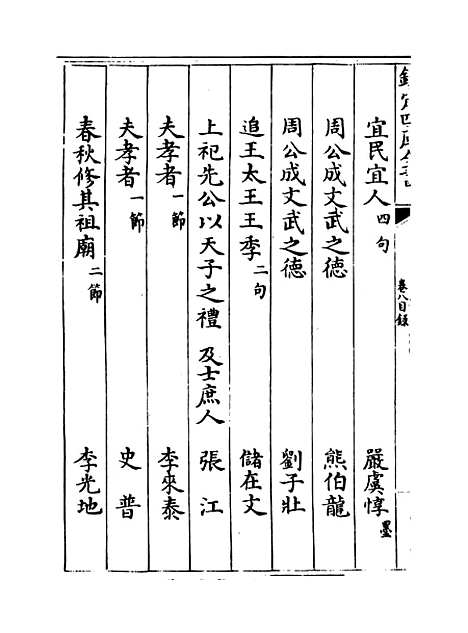 欽定四庫全書
卷八目録
宜民宜人四句 嚴虞惇墨
周公成文武之德 熊伯龍
周公成文武之德 劉子壯
追王太王王季二句 儲在文
上祀先公以天子之禮 及士庶人 張江
夫孝者一節 李來泰
夫孝者一節 史普
春秋修其祖廟二節 李光地